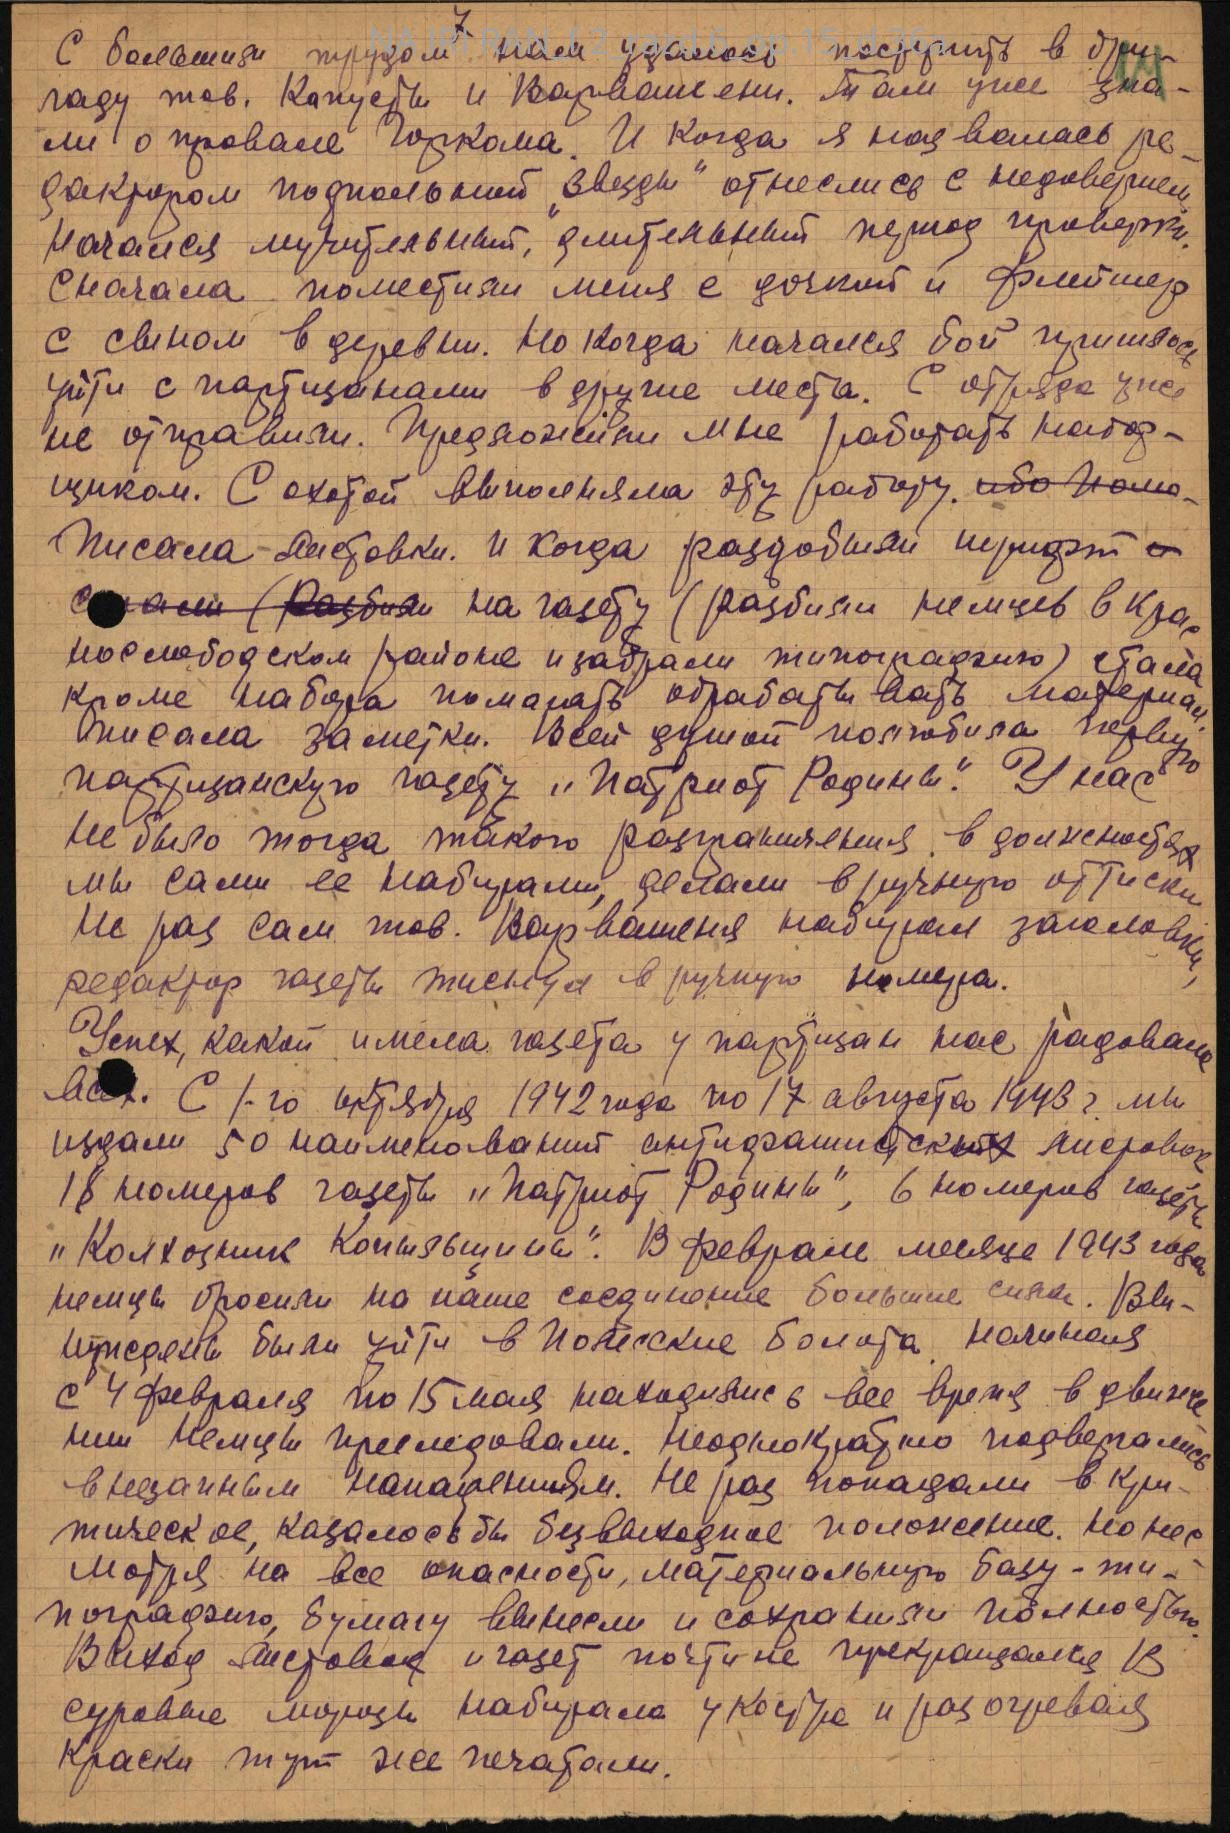 7
14
С большим трудом нам удалось поступить в бри-
гаду тов. Капусты и Варвашени. Там уже зна-
ли о провале Горкома. И когда я назвалась ре-
дактором подпольной „Звезды" отнеслись с недоверием.
Начался мучительный, длительный период проверки.
Сначала поместили меня с дочкой и Флейшер
с сыном в деревни. Но когда начался бой пришлось
уйти с партизанами в другие места. С отряда уже
не отправили. Предложили мне работать набор-
щиком. С охотой выполняла эту работу. ибо Пома-
Писала листовки. И когда раздобыли шрифт и
(Разбили на газету (разбили немцев в Крас
нослободском районе и забрали типографию) стала
кроме набора помагать обрабатывать материал,
писала заметки. Всей душой полюбила первую
партизанскую газету „Патриот Родины". У нас
не было тогда такого разграничения в должностях
мы сами ее набирали, делали вручную оттиски
Не раз сам тов. Варвашеня набирал заголовки,
редактор газеты тиснул вручную номера.
Успех, какой имела газета у партизан нас радовала
всех. С 1-го октября 1942 года по 17 августа 1943 г. мы
издали 50 наименований антифашистских листовок
18 номеров газеты „Патриот Родины", 6 номеров газеты
„Колхозник Копыльщины". В феврале месяце 1943 года
немцы бросили на наше соединение большие силы. Вы-
нуждены были уйти в Полесские болота. Начиная
с 4 февраля по 15 мая находились все время в движе
нии Немцы преследовали. Неоднократно подвергались
внезапным нападениям. Не раз попадали в кри-
тическое, казалось бы безвыходное положение. Но нес
мотря на все опасности, материальную базу - ти-
пографию, бумагу вынесли и сохранили полностью.
Выход листовок и газет почти не прекращался В
суровые морозы набирала у костра и разогревая
краски тут же печатали.